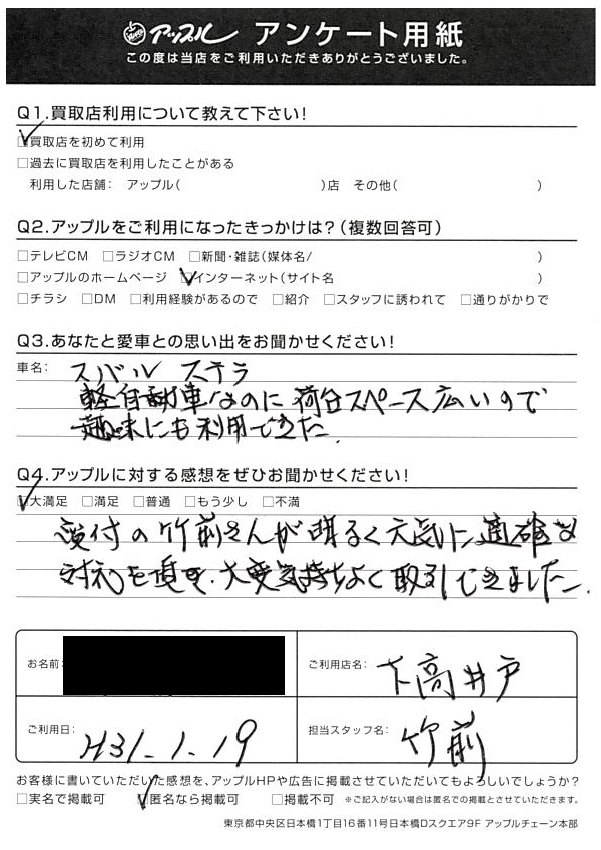 アップル アンケート用紙
この度は当店をご利用いただきありがとうございました。
Q1.買取店利用について教えて下さい!
□買取店を初めて利用
□過去に買取店を利用したことがある
利用した店舗: アップル( )店 その他( )
Q2.アップルをご利用になったきっかけは?(複数回答可)
□テレビCM □ラジオCM □新聞・雑誌(媒体名/ )
□アップルのホームページ □インターネット(サイト名 )
□チラシ □DM □利用経験があるので □紹介 □スタッフに誘われて □通りがかりで
Q3.あなたと愛車との思い出をお聞かせください!
車名: スバル ステラ
軽自動車なのに荷台スペース広いので
趣味にも利用できた.
Q4.アップルに対する感想をぜひお聞かせください!
□大満足 □満足 □普通 □もう少し □不満
受付の竹前さんが明るく元気に適確な
対応を頂き、大変気持ちよく取引できました.
お名前:
ご利用店名: 下高井戸
ご利用日: H31.1.19
担当スタッフ名: 竹前
お客様に書いていただいた感想を、アップルHPや広告に掲載させていただいてもよろしいでしょうか?
□実名で掲載可 □匿名なら掲載可 □掲載不可 ※ご記入がない場合は匿名での掲載とさせていただきます。
東京都中央区日本橋1丁目16番11号日本橋Dスクエア9F アップルチェーン本部